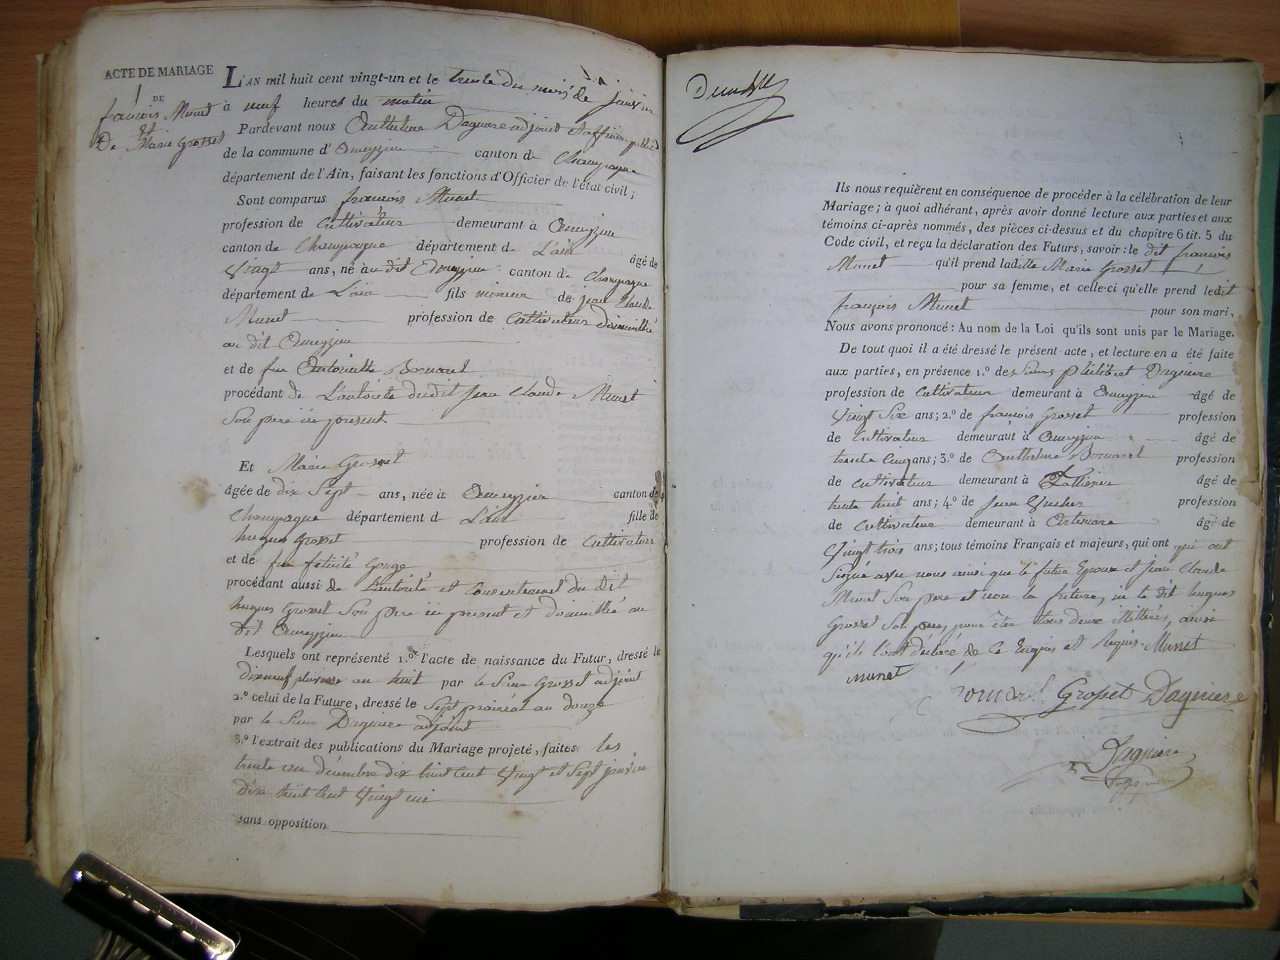 ACTE DE MARIAGE
DE
françois Munet
et
De Marie Grosset
L'AN mil huit cent vingt-un et le trente du mois de janvier
à neuf heures du matin
Pardevant nous Anthelme Daguere adjoint
de la commune d' Ameyzieu canton de Champagne
département de l'Ain, faisant les fonctions d'Officier de l'état civil;
Sont comparus françois Munet
profession de Cultivateur demeurant à Ameyzieu
canton de Champagne département de L'ain âgé de
Vingt ans, né au dit Ameyzieu canton de Champagne
département de L'ain fils mineur de jean Claude
Munet profession de Cultivateur domicillié
au dit Ameyzieu
et de feu Antoinette Bornard
procédant de L'autorité dudit Jean Claude Munet
Son père ici present
Et Marie Grosset
âgée de dix Sept ans, née à Ameyzieu canton de
Champagne département d L'ain fille de
hugues Grosset profession de Cultivateur
et de feu félicité Gouge
procédant aussi de L'autorité et Consentement du Dit
hugues Grosset Son père ici present et domicillié au
dit Ameyzieu
Lesquels ont représenté 1.º l'acte de naissance du Futur, dressé le
dixneuf pluviose an huit par le Sieur Grosset adjoint
2.º celui de la Future, dressé le Sept prairial an douze
par le Sieur Daguere adjoint
3.º l'extrait des publications du Mariage projeté, faites les
trente un décembre dix huit Cent Vingt et Sept janvier
dix huit Cent Vingt un
sans opposition
Ils nous requièrent en conséquence de procéder à la célébration de leur
Mariage; à quoi adhérant, après avoir donné lecture aux parties et aux
témoins ci-après nommés, des pièces ci-dessus et du chapitre 6 tit. 5 du
Code civil, et reçu la déclaration des Futurs, savoir: le dit françois
Munet qu'il prend ladite Marie Grosset
pour sa femme, et celle-ci qu'elle prend ledit
françois Munet pour son mari,
Nous avons prononcé: Au nom de la Loi qu'ils sont unis par le Mariage.
De tout quoi il a été dressé le présent acte, et lecture en a été faite
aux parties, en présence 1.º de Sieurs philibert Daguere
profession de Cultivateur demeurant à Ameyzieu âgé de
Vingt Six ans; 2.º de françois Grosset profession
de Cultivateur demeurant à Ameyzieu âgé de
trente Cinq ans; 3.º de Anthelme Bornard profession
de Cultivateur demeurant à âgé de
trente huit ans; 4.º de Jean profession
de Cultivateur demeurant à Artemare âgé de
Vingt trois ans; tous témoins Français et majeurs, qui ont qui ont
Signé avec nous ainsi que le futur Epoux et jean Claude
Munet Son père et non la future, ni le dit hugues
Grosset Son père, pour être tous deux illitérés, ainsi
qu'ils l'ont déclaré de Ce Enquis et Requis. Munet
Munet
Grosset Daguere
Daguere